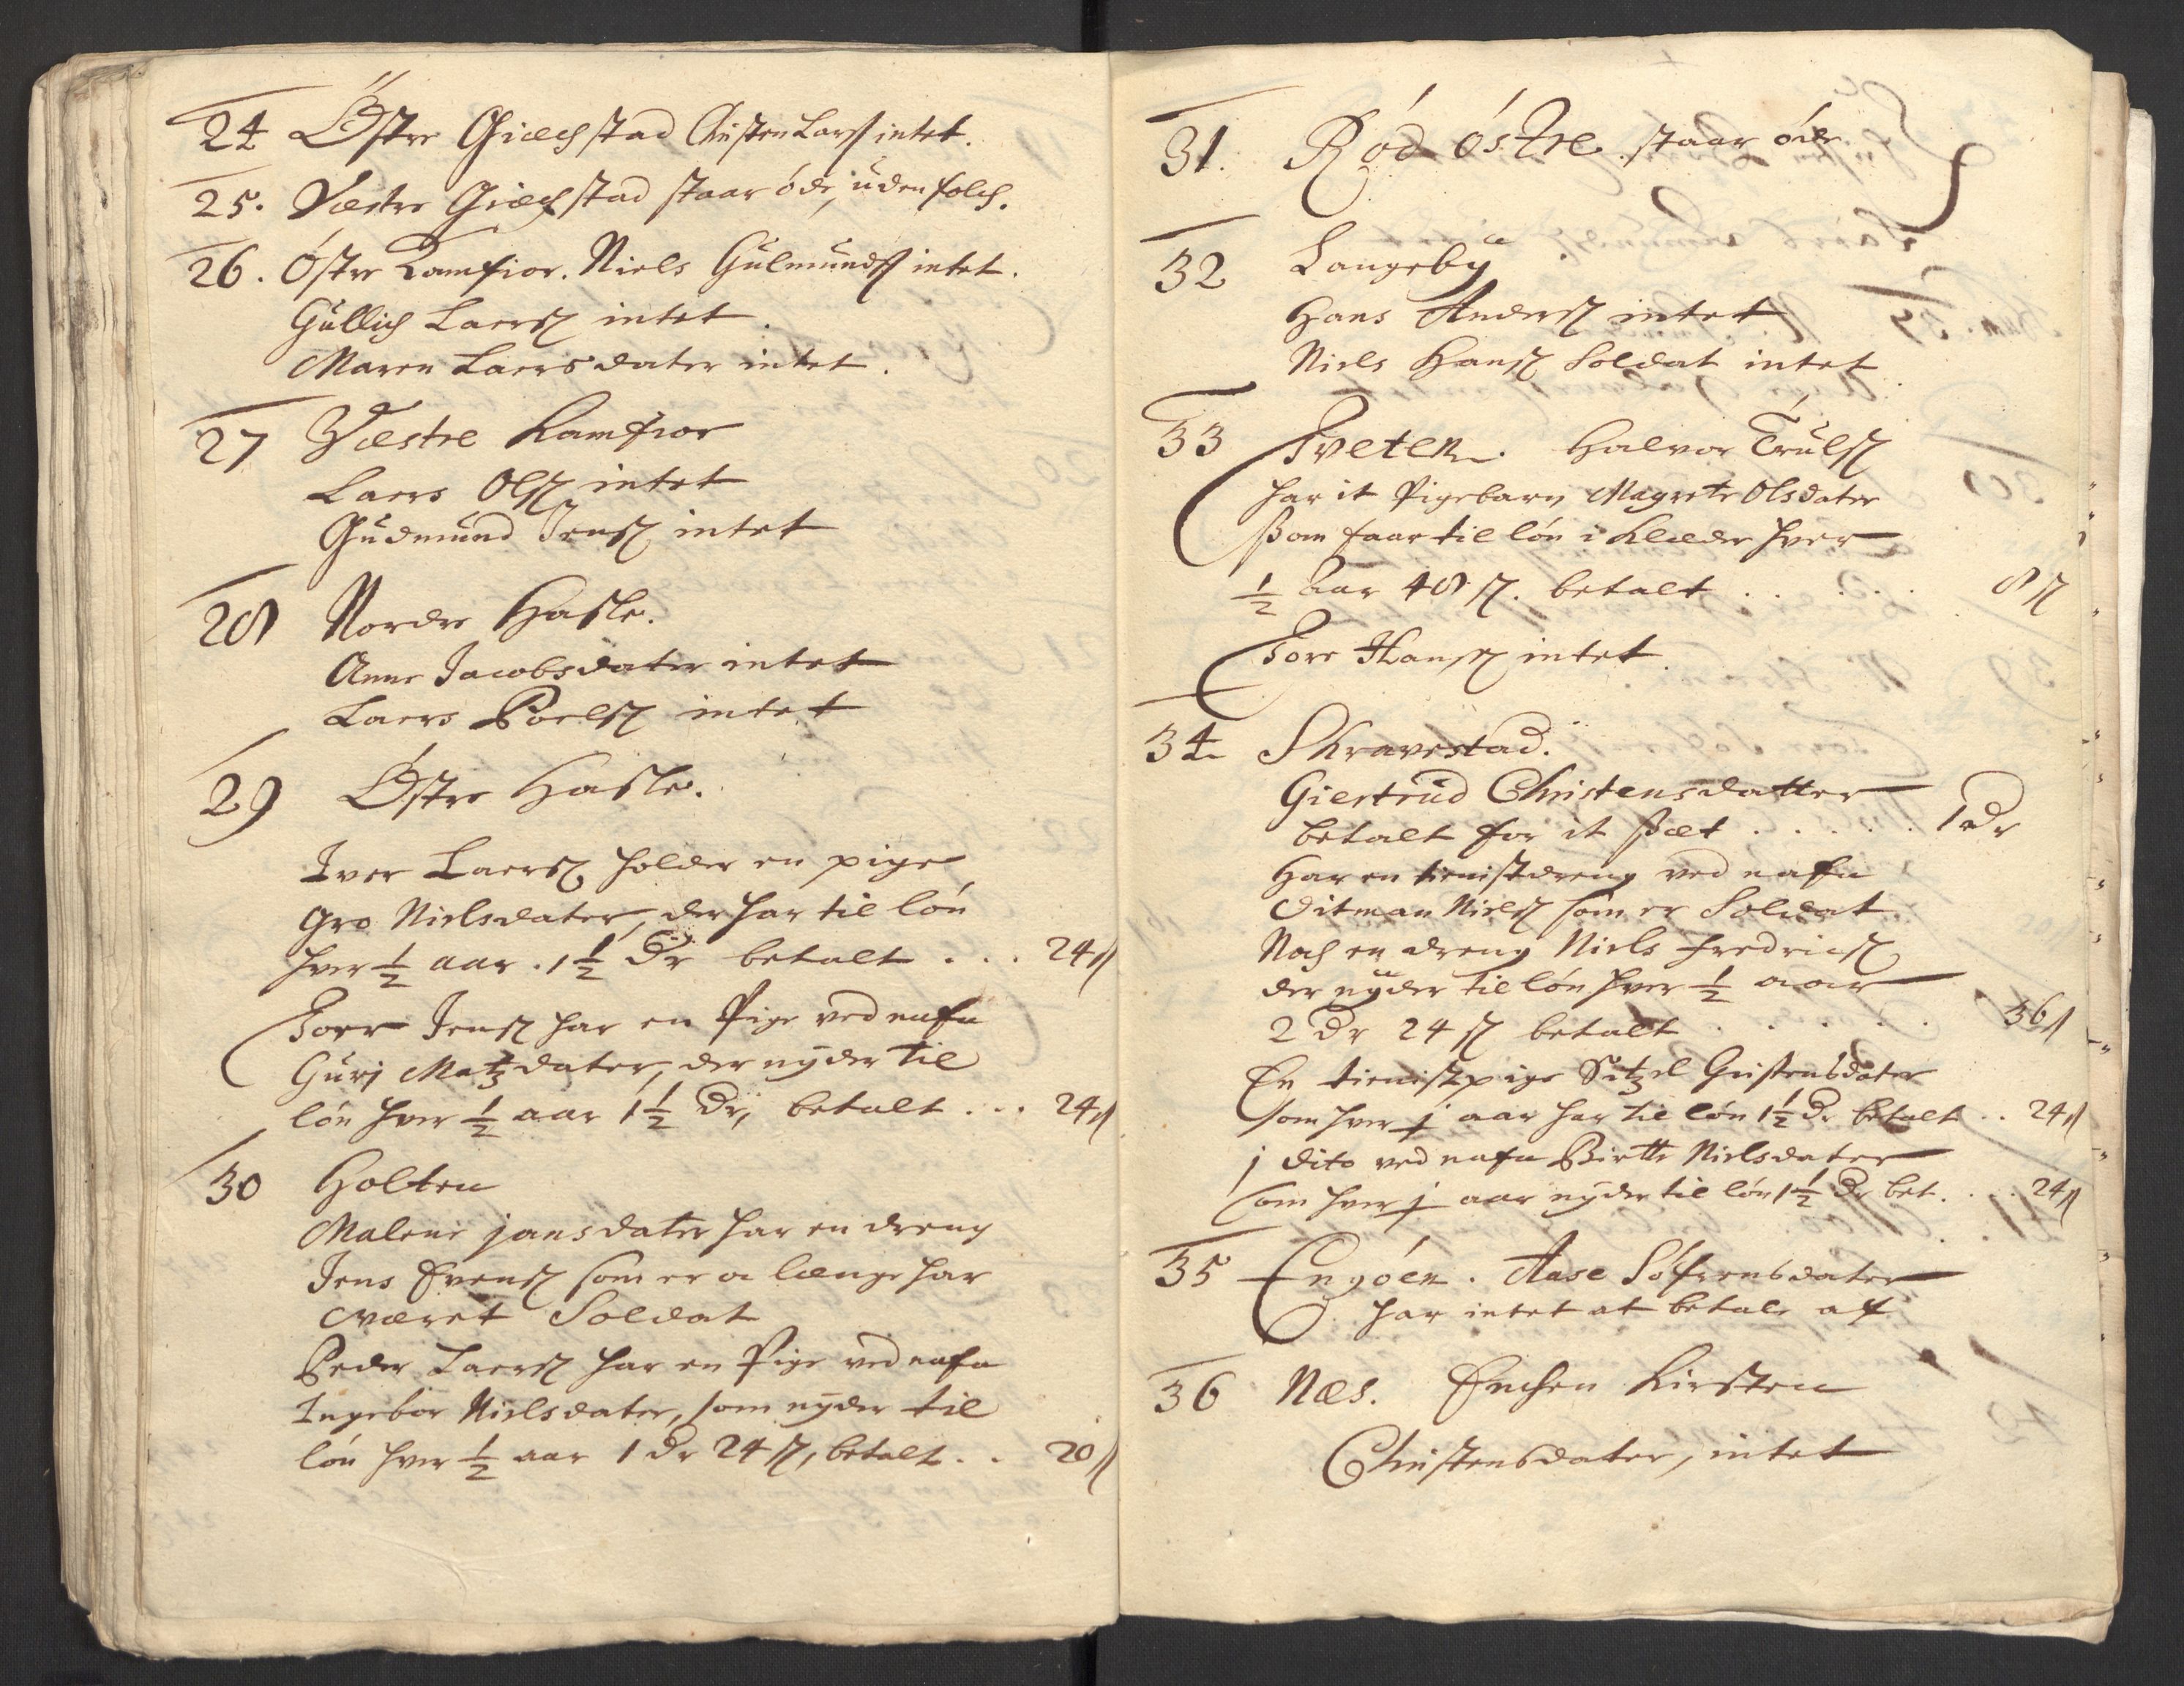 24 Østre Giechstad Christen Larsß intet.
25. Vestre Giechstad staar øde, uden folch.
26. Østre Ramfior. Niels Gulmundsß intet.
Gullich Laersß intet.
Maren Laersdater intet.
27 Væstre Ramfior
Laers Olsß intet
Gudmund Jensß intet
28 Nordre Hasle.
Anne Jacobsdater intet
Laers Poelsß intet
29 Østre Hasle.
Iver Laersß holder en pige
Gro Nielsdater, der har til løn
hver ½ aar. 1½ Dr betalt . . . 24ß
Torr Jensß har en Pige ved nafn
Guri Matzdater, der nyder til
løn hver ½ aar 1½ Dr, betalt . . . 24ß
30 Holten
Malene jansdater har en dreng
Jens Evensß som er oc længe har
været Soldat
Peder Laersß har en Pige ved nafn
Ingebor Nielsdater, som nyder til
løn hver ½ aar 1 Dr 24ß, betalt . . 20ß
31. Rød østre staar øde
32 Langeby
Hans Andersß intet
Niels Hansß Soldat intet
33 Tveten. Halvor Trulsß
har it Pigebarn Magrete Olsdater
ßom faar til løn i Klæder hver
½ Aar 48ß. betalt . . . . . 8ß
Torr Hansß intet.
34 Skravestad.
Giertrud Christensdatter
betalt for it sæt . . . . . 1 Dr
Har en tienistdreng ved nafn
Ditman Nielsß som er Soldat
Noch en dreng Niels fredricsß
der nyder til løn hver ½ aar
2 Dr 24ß betalt . . . . . 36ß
En tienistpige Sitzel Gristensdater
som hver ½ aar har til løn 1½ Dr betalt . . 24ß
j dito ved nafn Birtte Nielsdater
som hver ½ aar nyder til løn 1½ Dr bet. . . . 24ß
35 Engøen. Aase Søfrensdater
har intet at betale af
36 Næs. Enchen Kirsten
Christensdater, intet